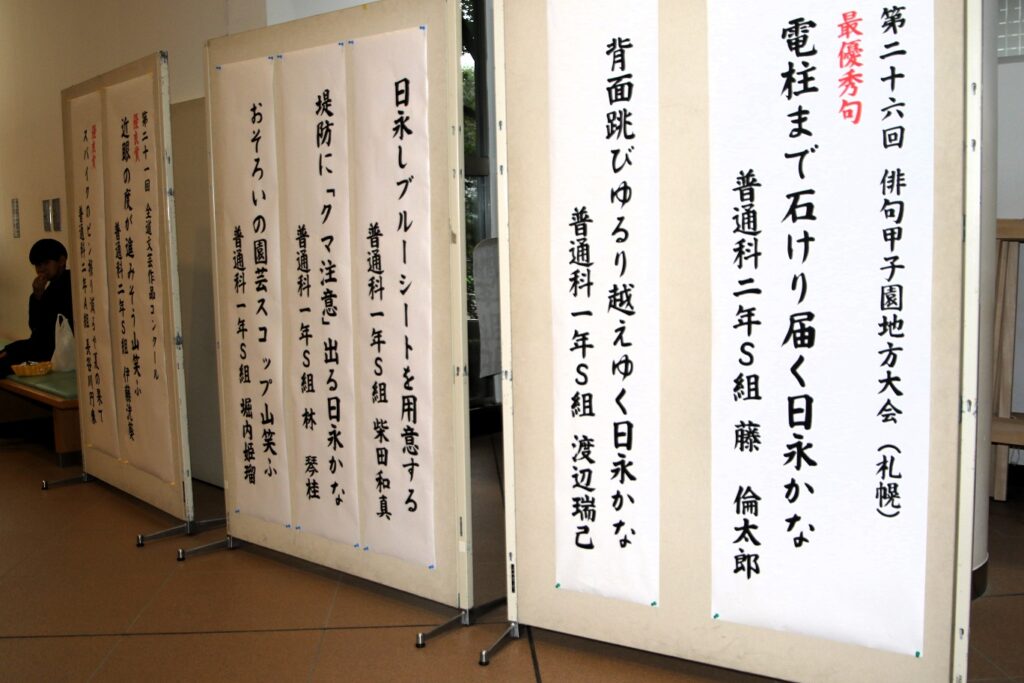 第二十六回 俳句甲子園地方大会（札幌）
最優秀句
電柱まで石けり届く日永かな
普通科二年S組 藤 倫太郎
背面跳びゆるり越えゆく日永かな
普通科一年S組 渡辺瑞己
日永しブルーシートを用意する
普通科一年S組 柴田和真
堤防に「クマ注意」出る日永かな
普通科一年S組 林 琴桂
おそろいの園芸スコップ山笑ふ
普通科一年S組 堀内姫瑠
第二十一回 全道文芸作品コンクール
優良賞
近眼の度が進みそう山笑ふ
普通科二年S組 伊藤
優良賞
スパイクのピン
夏の果て
普通科二年A組 長谷川円